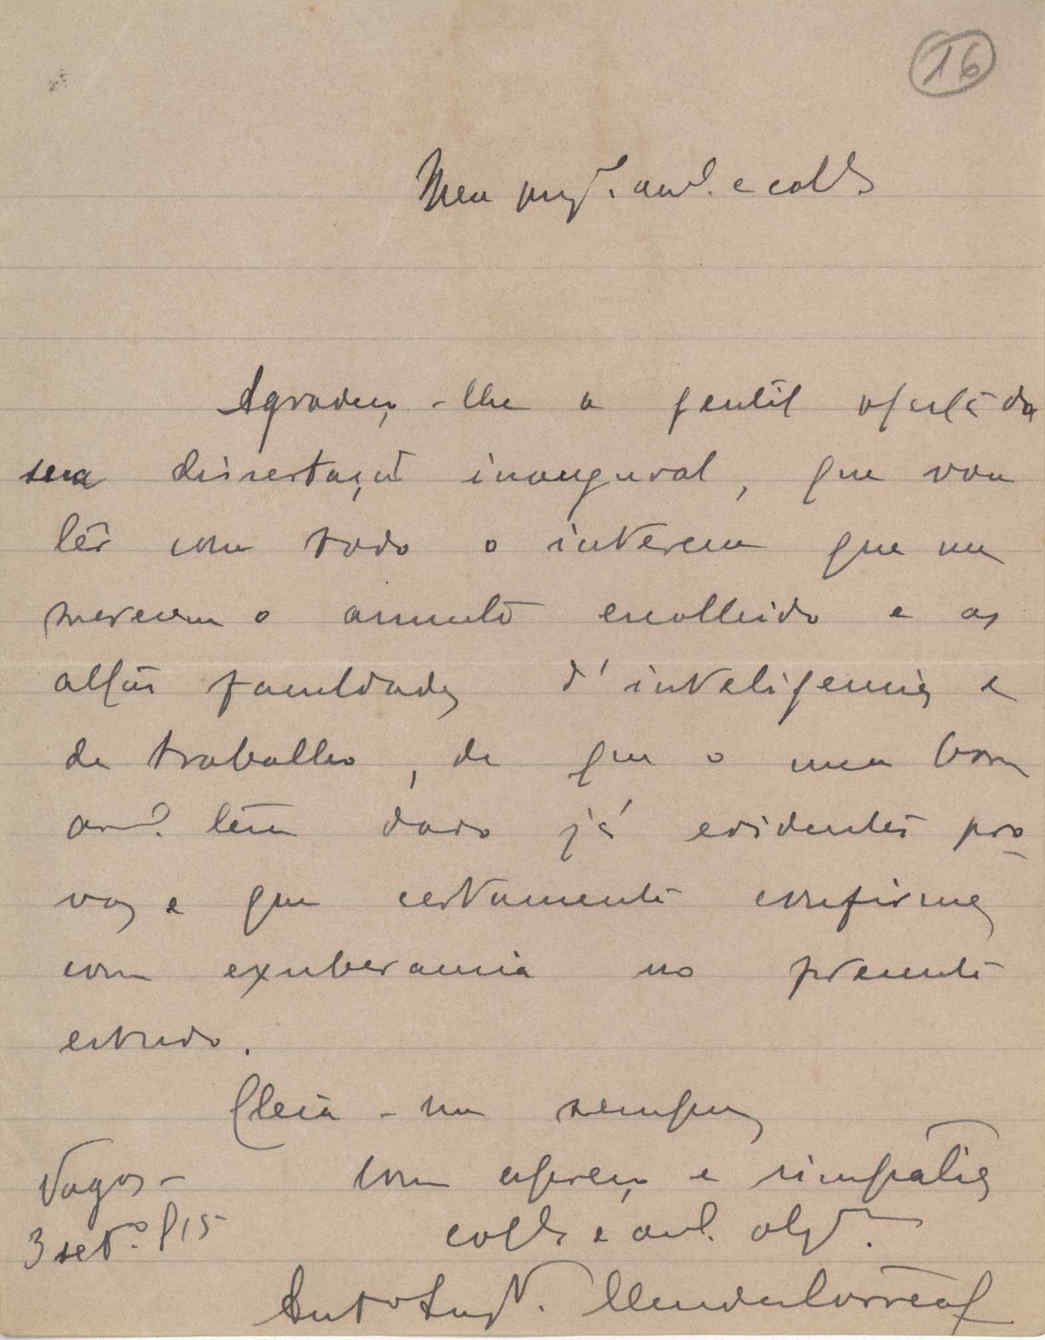 16
Meu am.º e coll.ª
Agradeço-lhe a gentil oferta da
sua dissertação inaugural, que vou
lêr com todo o interesse que me
merecem o assunto escolhido e as
altas faculdades d'inteligencia e
de trabalho, de que o meu bom
am.º tem dado já evidentes pro-
vas e que certamente confirma
com exuberancia no presente
estudo.
Creia-me sempre
Vagos - com apreço e simpatia
3 set.º 915 coll.ª e am.º obg.mo
Ant.º Aug.to Mendes Corrêa